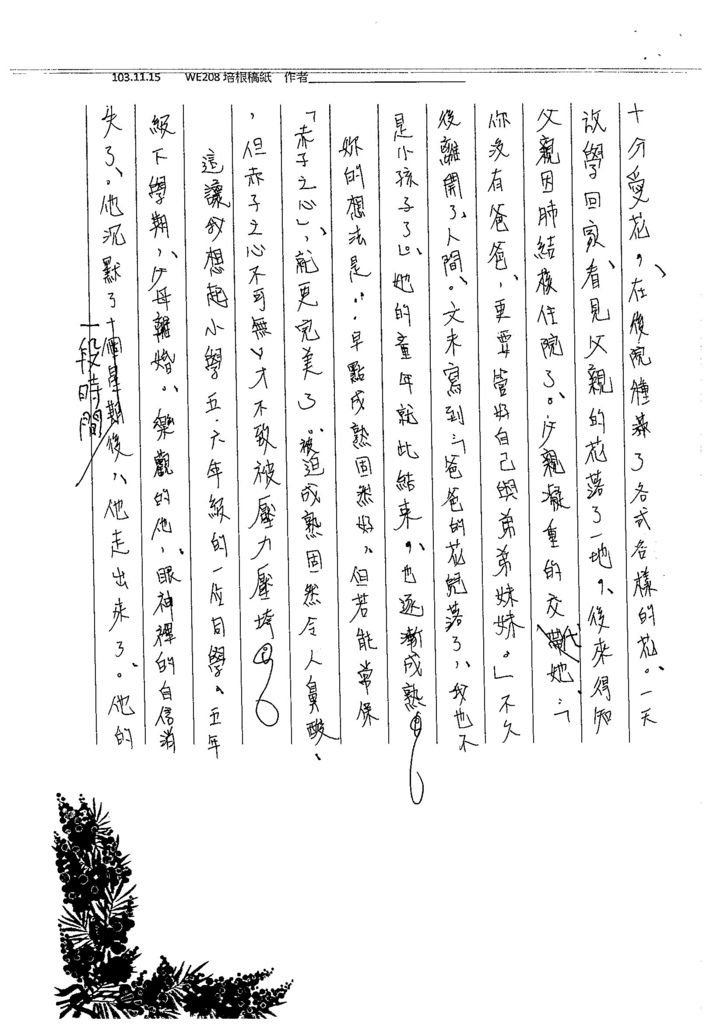 103.11.15 WE208 培根稿紙 作者
十分愛花，在後院種滿了各式各樣的花。一天
放學回家，看見父親的花落了一地，後來得知
父親因肺結核住院了。父親凝重的交代她：「
你沒有爸爸，更要管好自己與弟弟妹妹。」不久
後離開了人間。文末寫到：「爸爸的花兒落了，我也不
是小孩子了」。她的童年就此結束，也逐漸成熟。
她的想法是：早點成熟固然好，但若能常保
「赤子之心」，就更完美了。被迫成熟固然令人鼻酸，
，但赤子之心不可無，才不致被壓力壓垮。
這讓我想起小學五、六年級的一位同學。五年
級下學期，父母離婚。樂觀的他，眼神裡的自信消
失了。他沉默了十個星期後，他走出來了。他的
一段時間